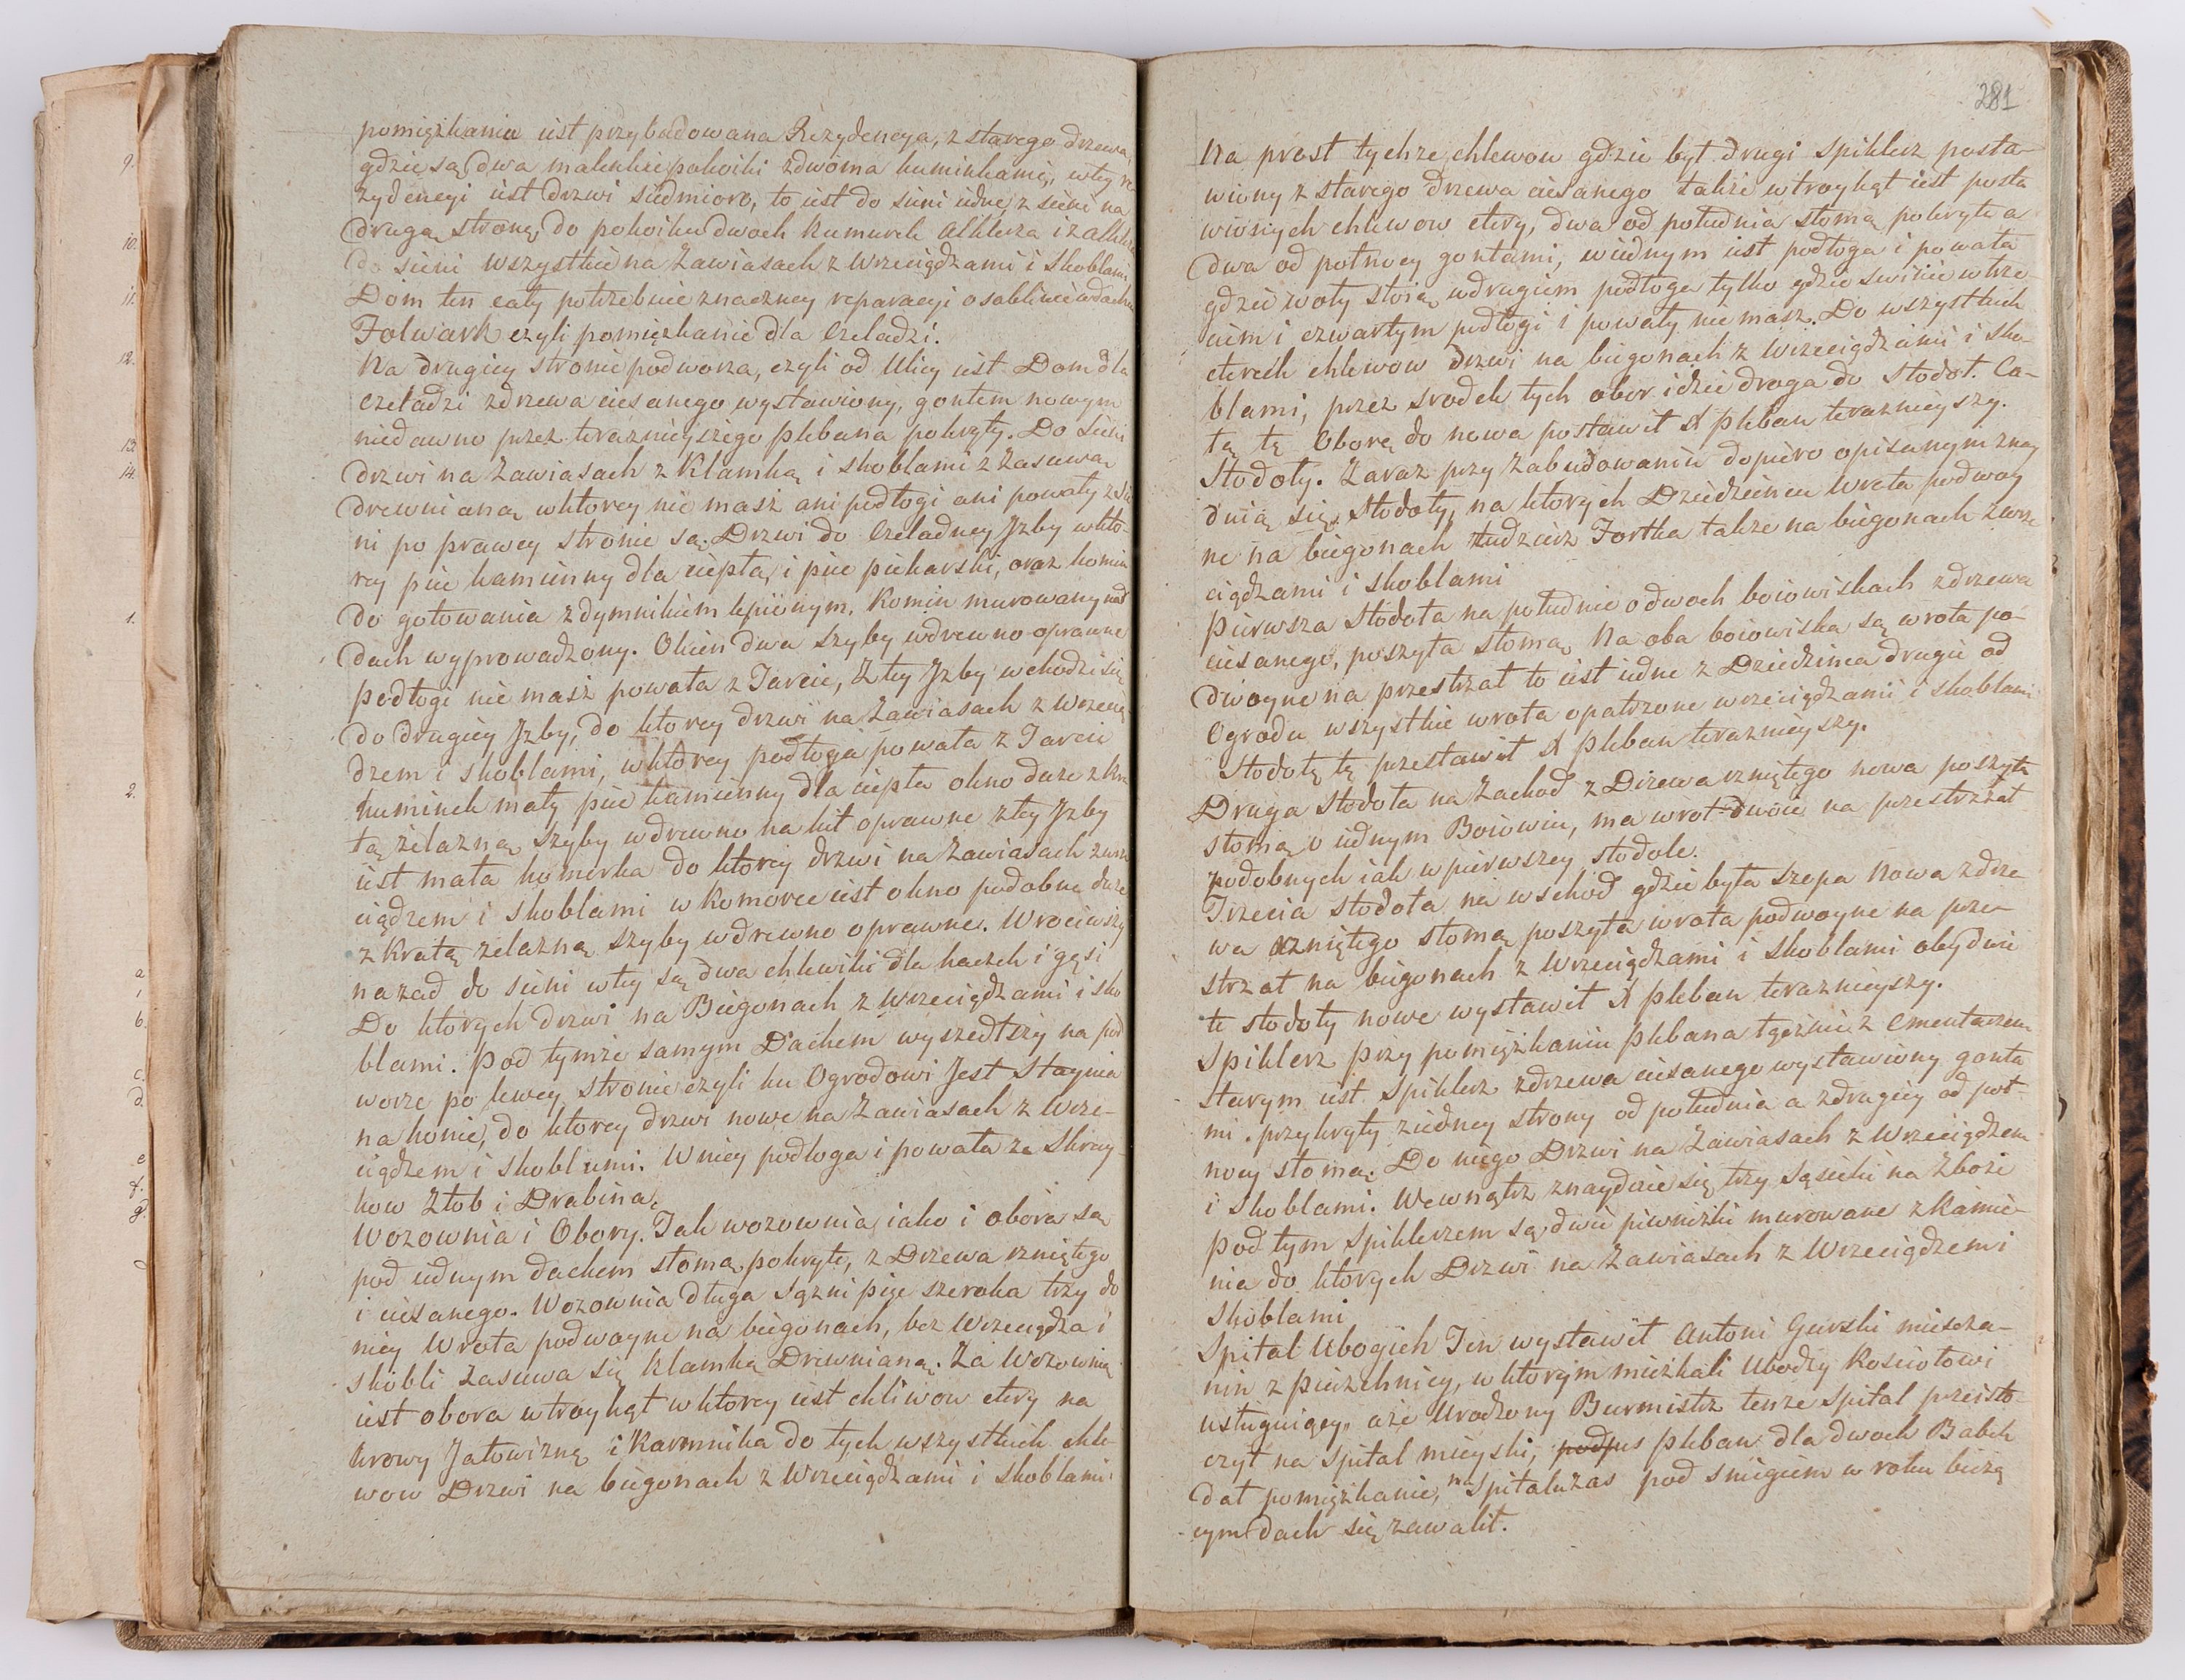 pomięzkania iest przybudowana Rezydencya, z starego drzewa,
gdzie są dwa malenkie pokoiki zdwoma kuminkami, wtey re
zydencyi iest drzwi siedmioro, to iest do sieni iedne z sieni na
drugą stronę do pokoiku dwoch kumurek Alkierza i z alkierza
do sieni wszystkie na Zawiasach z Wrzeciądzami i Skoblami.
Dom ten cały potrzebuie znaczney reparacyi osobliwie w dachu
Folwark czyli pomięzkanie dla Czeladzi.
Na drugiey stronie podworza, czyli od Ulicy iest Dom dla
czeladzi zdrzewa ciesanego wystawiony, gontem nowym
niedawno przez terazniejszego Plebana pokryty. Do Sieni
drzwi na Zawiasach z Klamką i skoblami z Zasuwą
drewnianą wktorey nie masz ani podłogi ani powały z sie
ni po prawey stronie są Drzwi do Czeladney Jzby wkto-
rey piec kamienny dla ciepła, i piec piekarski, oraz komin
do gotowania z dymnikiem lepionym. Komin murowany nad
dach wyprowadzony. Okien dwa szyby wdrewno oprawne
podłogi nie masz powała z Tarcic, Z tey Jzby wchodzi się
do drugiey Jzby, do ktorey drzwi na Zawiasach z wrzecią
dzem i skoblami, wktorey podłoga powała z Tarcic
kuminek mały piec kamienny dla ciepła okno duże z kra
tą żelazną szyby wdrewno na kit oprawne z tey Jzby
iest mała komorka do ktorey drzwi na Zawiasach z wrze
ciądzem i skoblami w komorce iest okno podobne duże
z kratą żelazną szyby wdrewno oprawne. Wrociwszy
nazad do sieni wtey są dwa chlewiki dla kaczek i gęsi
Do ktorych drzwi na Biegonach z Wrzeciądzami i sko
blami. Pod tymże samym Dachem wyszedłszy na pod
worze po lewey stronie czyli ku Ogrodowi Jest Staynia
na konie, do ktorey drzwi nowe na Zawiasach z Wrze-
ciądzem i skoblami. W niey podłoga i powała ze Skray-
kow Złob i Drabina.
Wozownia i Obory. Tak wozownia iako i obora są
pod iednym dachem słomą pokryte, z Drzewa rzniętego
i ciesanego. Wozownia długa sązni pięc szeroka trzy do
niey Wrota podwoyne na biegonach, bez Wrzeciądza i
skobli Zasuwa się klamką Drewnianą. Za Wozownią
iest obora w troykąt wktorey iest chliwow cztry na
krowy Jałowizną i Karmnika do tych wszystkich chle-
wow Drzwi na biegonach z Wrzeciądzami i skoblami
281
Na prost tychze chlewow gdzie był drugi Spiklerz posta-
wiony z starego drzewa ciesanego także w troykąt iest posta
wionych chlewow cztry, dwa od południa słomą pokryte a
dwa od połnocy gontami, wiednym iest podłoga i powała
gdzie woły stoią wdrugim podłoga tylko gdzie swinie w trze-
cim i czwartym podłogi i powały nie masz. Do wszystkich
cterech chlewow drzwi na biegonach z Wrzeciądzami i sko-
blami, przez srodek tych obor idzie droga do Stodoł. Ca-
łą tę Oborę do nowa postawił X Pleban terazniejszy.
Stodoły. Zaraz przy Zabudowaniu dopiero opisanym znay
duią się Stodoły, na ktorych Dziedzieńcu Wrota podwoy
ne na biegonach tudziesz Fortka takze na biegonach z wrze
ciądzami i skoblami
Pierwsza Stodoła na południe o dwoch boiowiskach zdrzewa
ciesanego, poszyta słomą Na oba boiowiska są wrota po-
dwoyne na przestrzał to iest iedne z Dziedzinca drugie od
Ogrodu wszystkie wrota opatrzone wrzeciądzami i skoblami
Stodołę tę przestawił X Pleban terazniejszy.
Druga Stodoła na Zachod z Drzewa rzniętego nowa poszyta
słomą o iednym Boiowiu, ma wrot dwoie na przestrzał
podobnych iak wpierwszey stodole.
Trzecia stodoła na wschod gdzie była szopa Nowa zdrze
wa rzniętego słomą poszyta wrota podwoyne na prze-
strzał na biegonach z Wrzeciądzami i Skoblami obydwie
te stodoły nowe wystawił X Pleban terazniejszy.
Spiklerz przy pomięzkaniu Plebana tgoznie z Cmentarzem
Starym iest Spiklerz zdrzewa ciesanego wystawiony gonta
mi przykryty ziedney strony od południa a zdrugiey od poł-
nocy słomą. Do niego Drzwi na Zawiasach z Wrzeciądzem
i Skoblami. Wewnątrz znayduie się trzy Sąsieki na Zboże
Pod tym Spiklerzem są dwie piwniczki murowane z kamie-
nia do ktorych Drzwi na Zawiasach z Wrzeciądzemi
Skoblami
Spital Ubogich Ten wystawił Antoni Gurski miescza-
nin z Pierzchnicy, w ktorym mieszkali Ubodzy Kosciołowi
usługuiący, aże Urodzony Burmistrz tenze Spital przeisto-
czył na Spital mieyski, Pleban dla dwoch Babek
dał pomięzkanie, Spitaluzas pod sniegiem w roku bieżą
cym dach się zawalił.